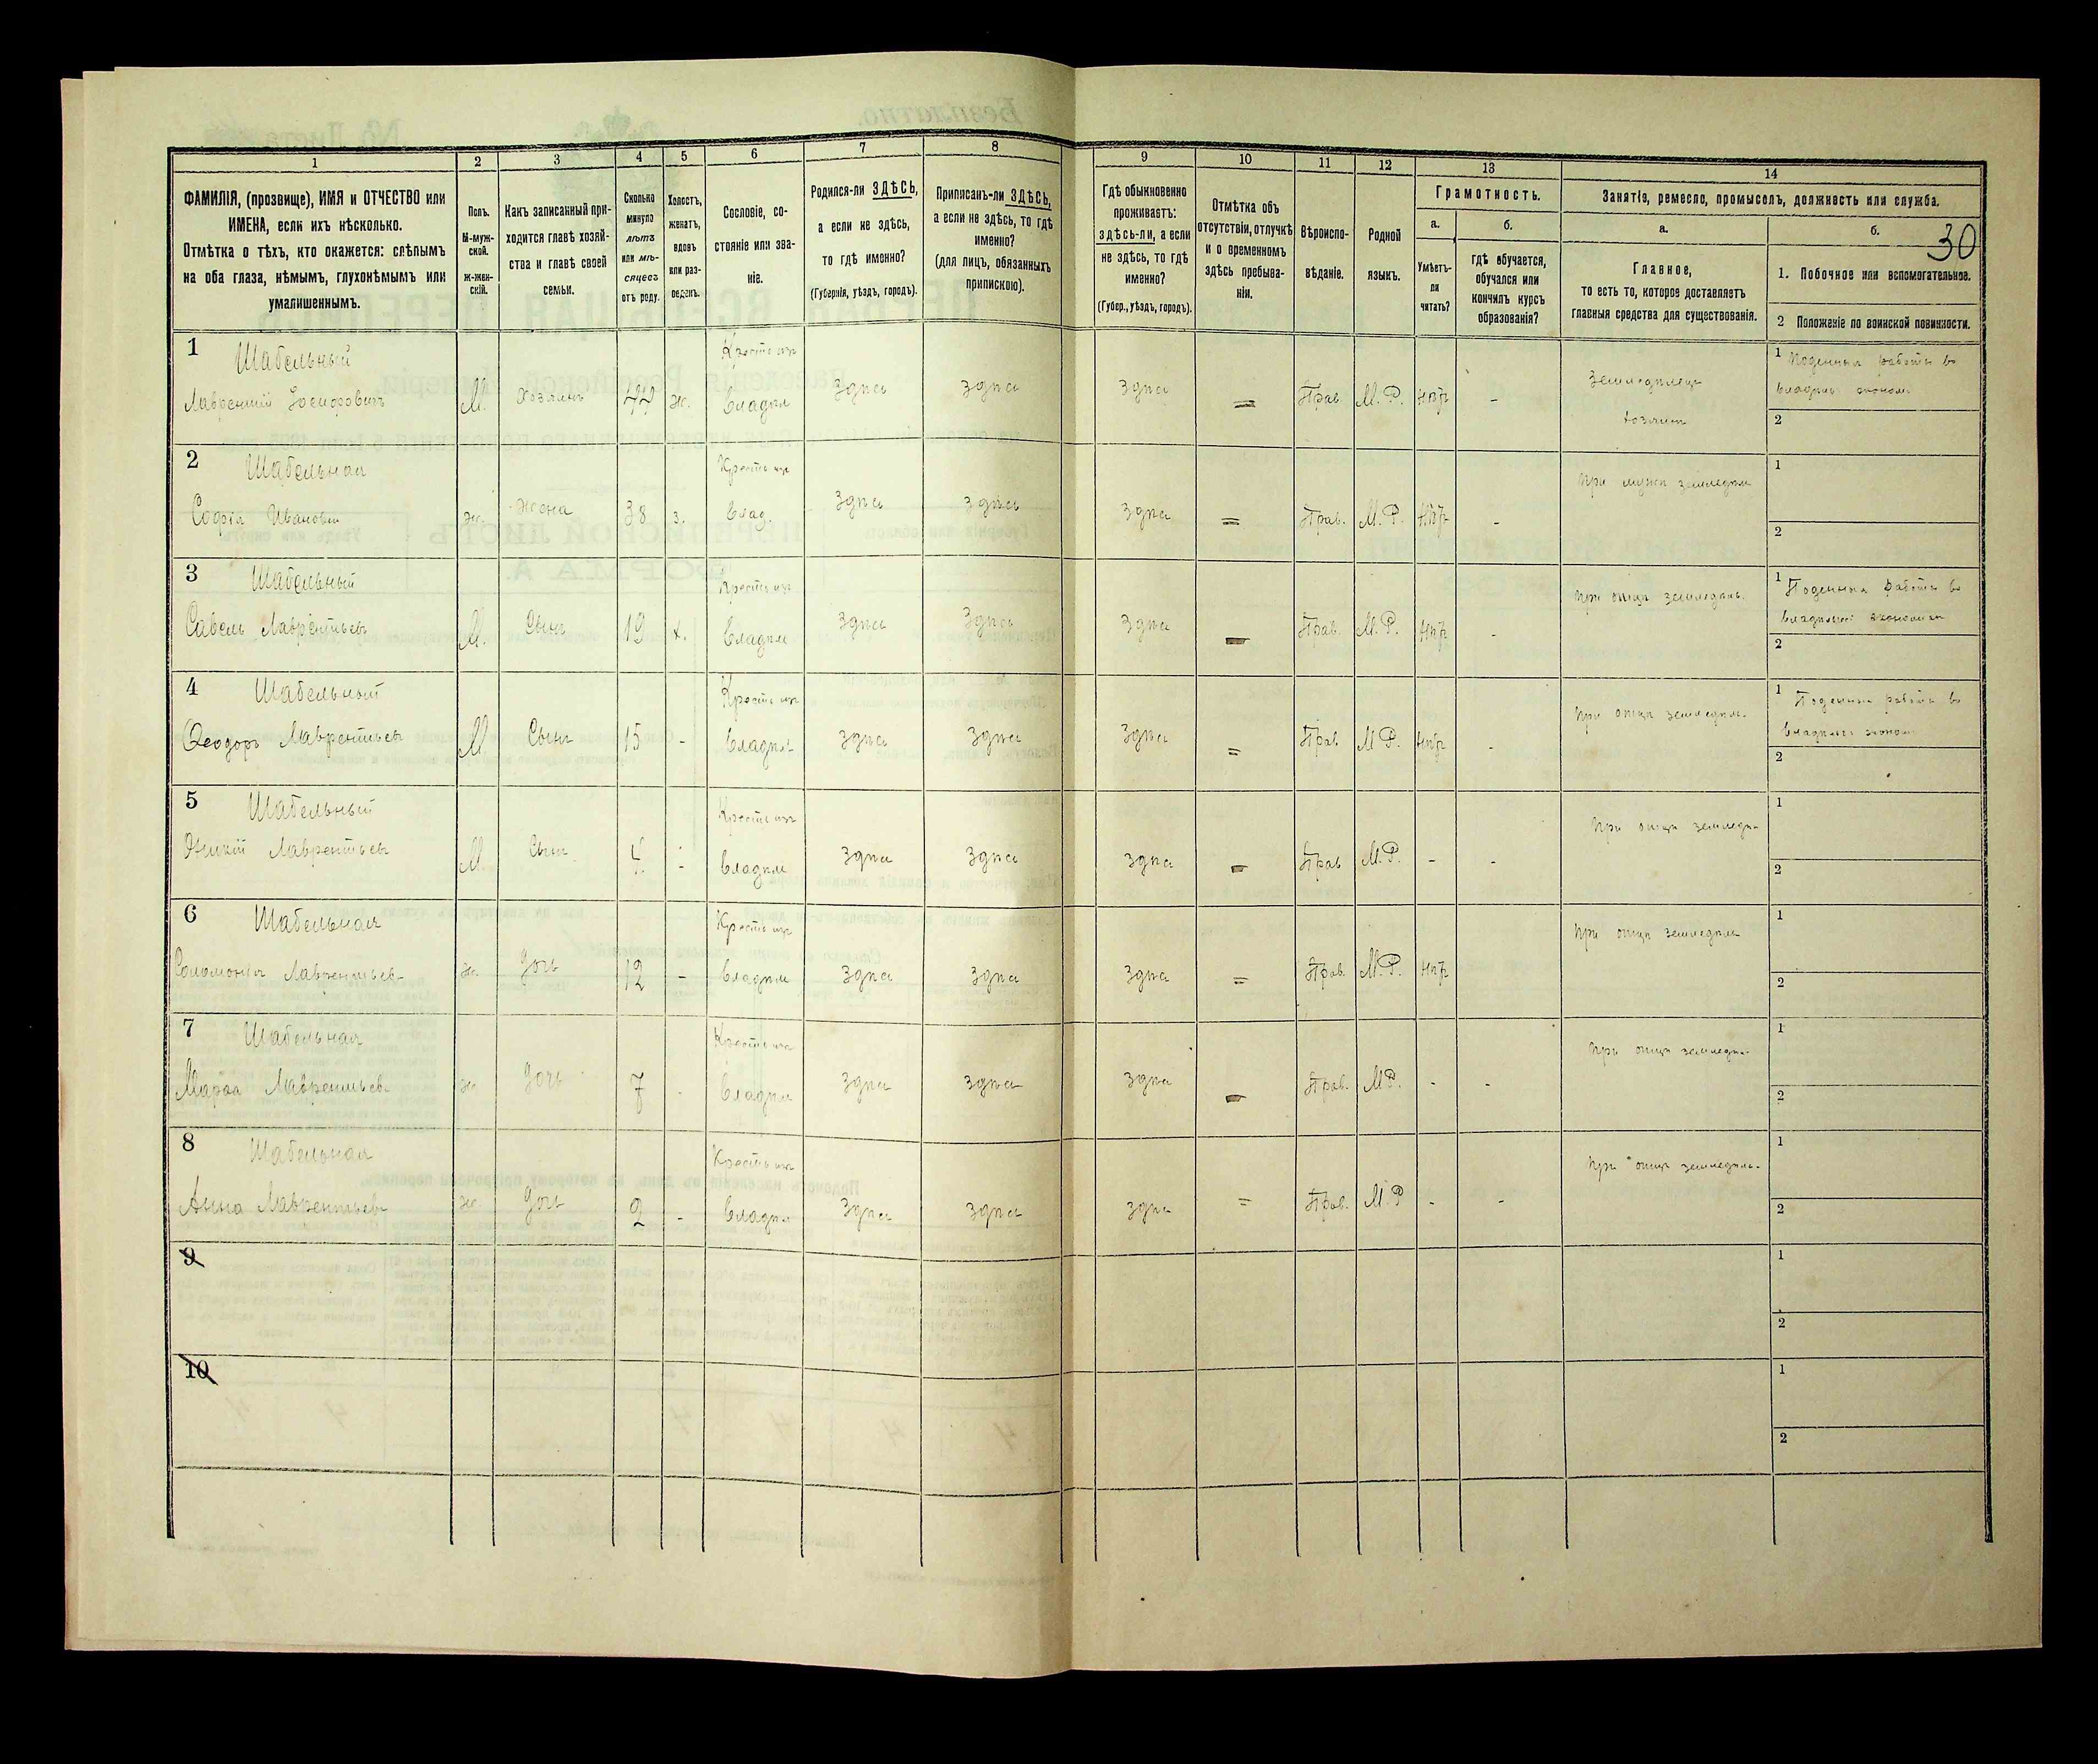 30
1 2 3 4 5 6 7 8 9 10 11 12 13 14
ФАМИЛІЯ, (прозвище), ИМЯ и ОТЧЕСТВО или
ИМЕНА, если ихъ нѣсколько.
Отмѣтка о тѣхъ, кто окажется: слѣпымъ
на оба глаза, нѣмымъ, глухонѣмымъ или
умалишеннымъ.
Полъ.
М-муж-
ской.
ж-жен-
скій.
Какъ записанный при-
ходится главѣ хозяй-
ства и главѣ своей
семьи.
Сколько
минуло
лѣтъ
или мѣ-
сяцевъ
отъ роду.
Холостъ,
женатъ,
вдовъ
или раз-
веденъ.
Сословіе, со-
стояніе или зва-
ніе.
Родился-ли ЗДѢСЬ,
а если не здѣсь,
то гдѣ именно?
(Губернія, уѣздъ, городъ).
Приписанъ-ли ЗДѢСЬ,
а если не здѣсь, то гдѣ
именно?
(для лицъ, обязанныхъ
припискою).
Гдѣ обыкновенно
проживаетъ:
здѣсь-ли, а если
не здѣсь, то гдѣ
именно?
(Губер., уѣздъ, городъ).
Отмѣтка объ
отсутствіи, отлучкѣ
и о временномъ
здѣсь пребыва-
ніи.
Вѣроиспо-
вѣданіе.
Родной
языкъ.
Грамотность.
а.
Умѣетъ-
ли
читать?
б.
гдѣ обучается,
обучался или
кончилъ курсъ
образованія?
Занятіе, ремесло, промыселъ, должность или служба.
а.
Главное,
то есть то, которое доставляетъ
главныя средства для существованія.
б.
1. Побочное или вспомогательное.
2 Положеніе по воинской повинности.
1 Шабельный Крестьянъ 1 Поденныя работы въ
Лаврентій Іосифовичъ М. Хозяинъ 44 ж. владѣл здѣсь здѣсь здѣсь = Прав. М.Р. нѣтъ - земледѣлецъ владѣльч эконом
хозяинъ 2
2 Шабельная Крестьянъ При мужѣ земледѣл 1
Софія Иванова ж. жена 38 з. влад. здѣсь здѣсь здѣсь = Прав. М.Р. нѣтъ - 2
3 Шабельный Крестьянъ При отцѣ земледѣль. 1 Поденныя работы въ
Савель Лаврентьевъ М. Сынъ 19 х. владѣл здѣсь здѣсь здѣсь = Прав. М.Р. нѣтъ - 2
4 Шабельный Крестьянъ При отцѣ земледѣл. 1 Поденныя работы въ
Ѳеодоръ Лаврентьевъ М Сынъ 15 - владѣл здѣсь здѣсь здѣсь = Прав М.Р. нѣтъ - 2
5 Шабельный Крестьянъ При отцѣ земледѣ- 1
Лаврентьевъ М. Сынъ - владѣл здѣсь здѣсь здѣсь = Прав М.Р. - - 2
6 Шабельная Крестьянъ При отцѣ земледѣл 1
Соломонія Лаврентьев- ж. дочь 12 - владѣл здѣсь здѣсь здѣсь = Прав. М.Р. нѣтъ 2
7 Шабельная Крестьянъ При отцѣ земледѣ- 1
Марѳа Лаврентьев- ж. дочь 7 - владѣл здѣсь здѣсь здѣсь = Прав. М.Р. - - 2
8 Шабельная Крестьянъ При отцѣ земледѣль- 1
Анна Лаврентьев- ж. дочь 2 - владѣл здѣсь здѣсь здѣсь = Прав. М.Р - - 2
9 1
2
10 1
2